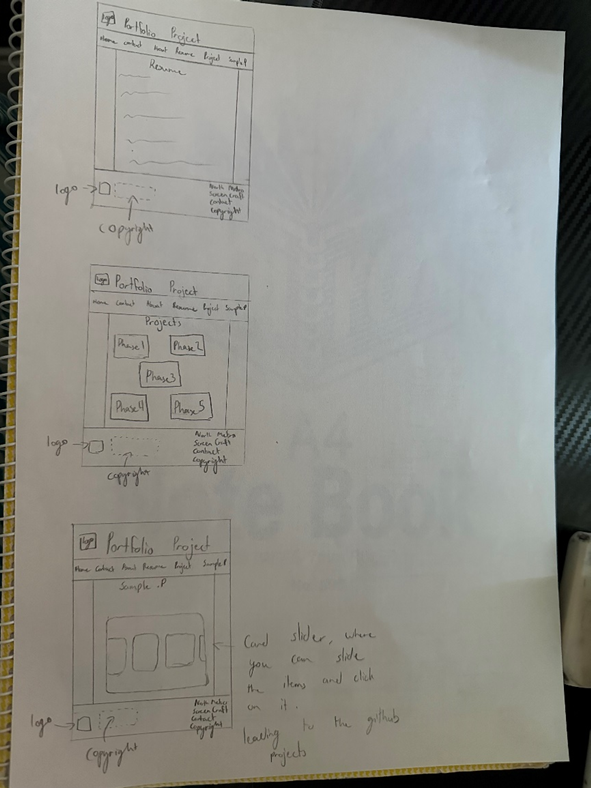 logo
Portfolio Project
Home contact About Resume Project Sample.P
Resume
logo
copyright
North Metro
Screen Craft
Contact
Copyright
logo
Portfolio Project
Home Contact About Project Sample.P
Projects
Phase1
Phase2
Phase3
Phase4
Phase5
logo
copyright
North Metro
Screen Craft
Contact
Copyright
A4
Note Book
logo
Portfolio Project
Home Contact About Resume Project Sample P
Sample .P
Card slider, where
you can slide
the items and click
on it.
leading to the github
projects
logo
copyright
North Metro
Screen Craft
Contact
Copyright